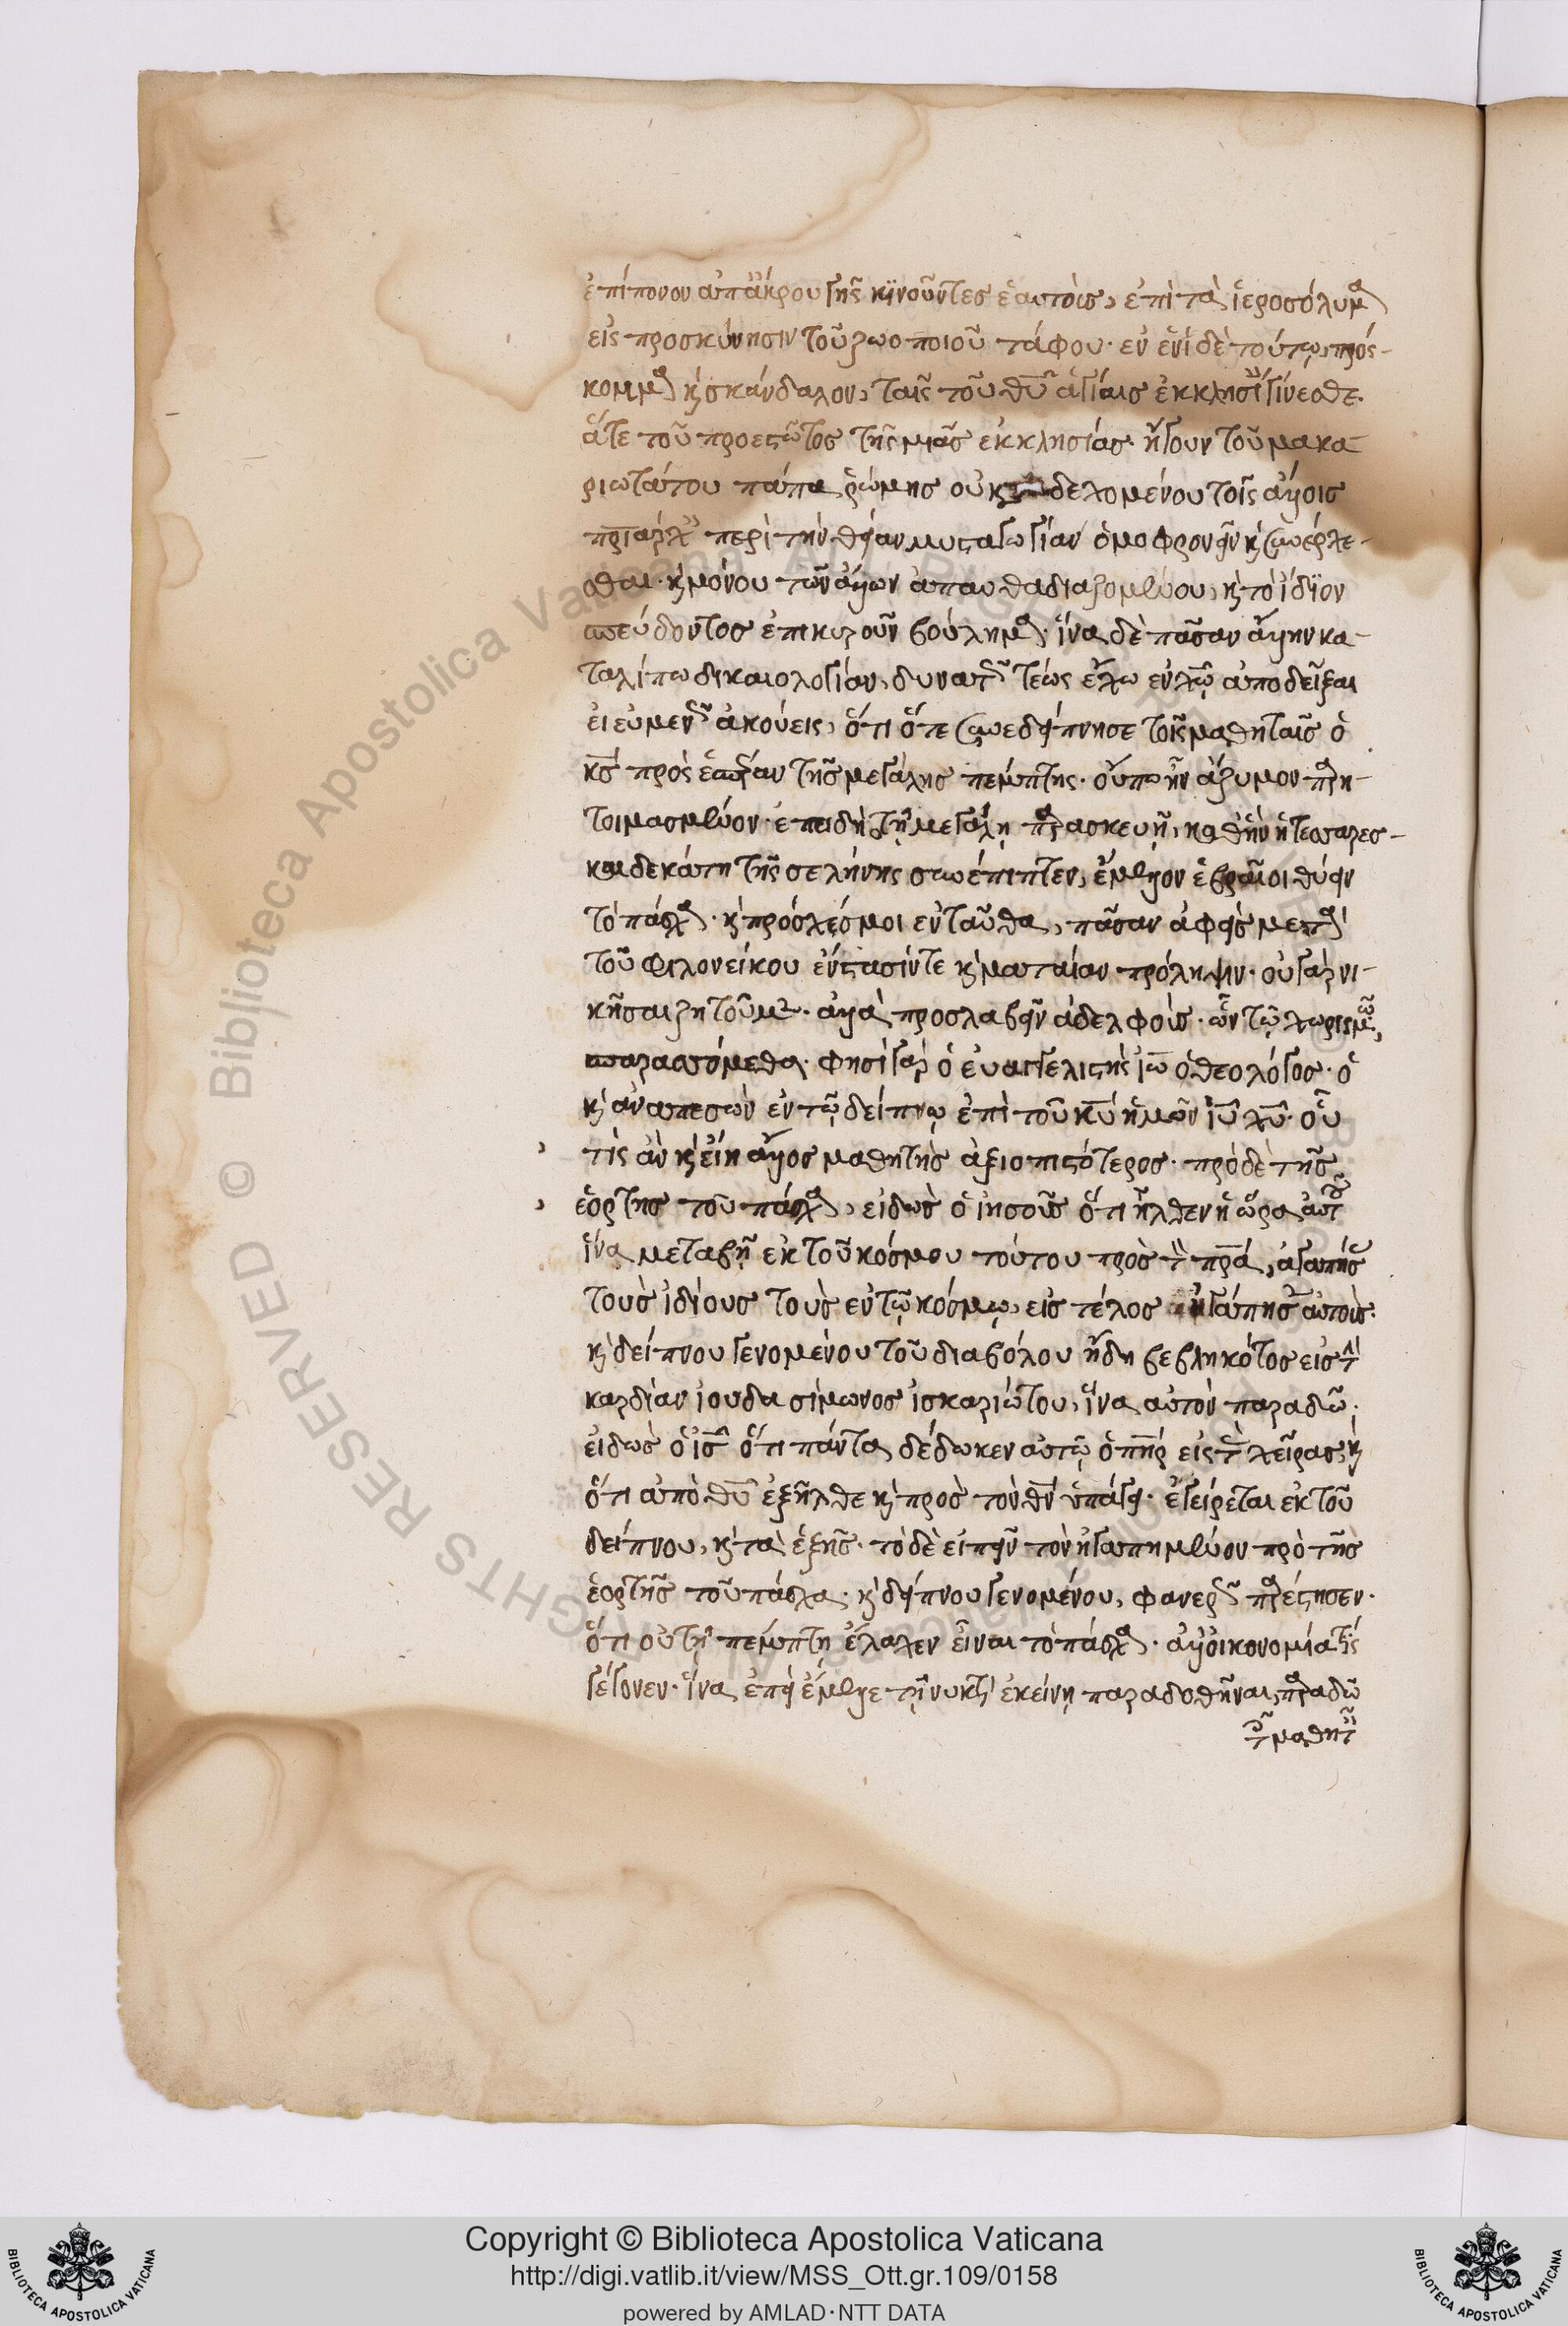 ἐπίπονον ἀπ' ἄκρου γῆς κινοῦντες ἑαυτοὺς, ἐπὶ τὰ ἱεροσόλυμα
εἰς προσκύνησιν τοῦ ζωοποιοῦ τάφου· ἐν ἑνὶ δὲ τούτω, πρόσ-
κομμα κỳ σκάνδαλον, ταῖς τοῦ θῦ ἁγίαις ἐκκλησίαις γίνεσθε.
ἅτε τοῦ προεστῶτος τῆς μιᾶς ἐκκλησίας· ἤγουν τοῦ μακα-
ριωτάτου πάπα ῥώμης οὐκ δεχομένου τοῖς ἄλλοις
πριάρχαις περὶ τὴν θείαν μυσταγωγίαν ὁμοφρονεῖν κỳ συνέρχε-
σθαι· κỳ μόνου τῶν ἄλλων ἀπαυθαδιαζομένου, κỳ τὸ ἴδϊον
σπεύδοντος ἐπικυροῦν βούλημα· ἵνα δὲ πᾶσαν ἄλλην κα-
ταλίπω δικαιολογίαν, δυνατῶς τέως ἔχω ἐν χῶ ἀποδεῖξαι
εἰ εὐμενῶς ἀκούεις, ὅτι ὅτε συνεδείπνησε τοῖς μαθηταῖς ὁ
κς πρὸς ἑσπέραν τῆς μεγάλης πέμπτης· οὔπω ἦν ἄζυμον παρη-
τοιμασμένον· ἐπειδὴ τῆ μεγάλη παρασκευῆ, καθ' ἣν ἡ τεσσαρεσ-
καιδεκάτη τῆς σελήνης συνέπιπτεν, ἔμελλον ἑβραῖοι θύειν
τὸ πάσχα· κỳ πρόσχες μοι ἐνταῦθα, πᾶσαν ἀφεὶς μετὰ
τοῦ φιλονείκου ἔνστασίν τε κỳ ματαίαν πρόληψιν· οὐ γὰρ νι-
κῆσαι ζητοῦμεν· ἀλλὰ προσλαβεῖν ἀδελφοὺς· ὧν τῶ χωρισμῶ
σπαρασσόμεθα· φησὶ γὰρ ὁ εὐαγγελιστὴς ἰῶ ὁ θεολόγος· ὁ
κỳ ἀναπεσὼν ἐν τῶ δείπνω ἐπὶ τοῦ κῦ ἡμῶν ἰῦ χῦ· οὗ
τίς ἂν κỳ εἴη ἄλλος μαθητὴς ἀξιοπιστότερος· πρὸ δὲ τῆς
ἑορτῆς τοῦ πάσχα, εἰδὼς ὁ ἰησοῦς ὅτι ἦλθεν ἡ ὥρα αὐτοῦ
ἵνα μεταβῆ ἐκ τοῦ κόσμου τούτου πρὸς τὸν πρα, ἀγαπήσας
τοὺς ἰδίους τοὺς ἐν τῶ κόσμω, εἰς τέλος ἠγάπησεν αὐτοὺς.
κỳ δείπνου γενομένου τοῦ διαβόλου ἤδη βεβληκότος εἰς τὴν
καρδίαν ἰούδα σίμωνος ἰσκαριώτου, ἵνα αὐτὸν παραδῶ·
εἰδὼς ὁ ἰς ὅτι πάντα δέδωκεν αὐτῶ ὁ πηρ εἰς τὰς χεῖρας, κỳ
ὅτι ἀπὸ θῦ ἐξῆλθε κỳ πρὸς τὸν θν ὑπάγει· ἐγείρεται ἐκ τοῦ
δείπνου, κỳ τὰ ἑξῆς· τὸ δὲ εἰπεῖν τὸν ἠγαπημένον πρὸ τῆς
ἑορτῆς τοῦ πάσχα· κỳ δείπνου γενομένου, φανερῶς παρέστησεν·
ὅτι οὐ τῆ πέμπτη ἔλαχεν εἶναι τὸ πάσχα· ἀλλ' οἰκονομία τίς
γέγονεν· ἵνα ἐπεὶ ἔμελλε τῆ νυκτὶ ἐκείνη παραδοθῆναι, παραδῶ
τοῖς μαθηταῖς
Copyright © Biblioteca Apostolica Vaticana
http://digi.vatlib.it/view/MSS_Ott.gr.109/0158
powered by AMLAD·NTT DATA